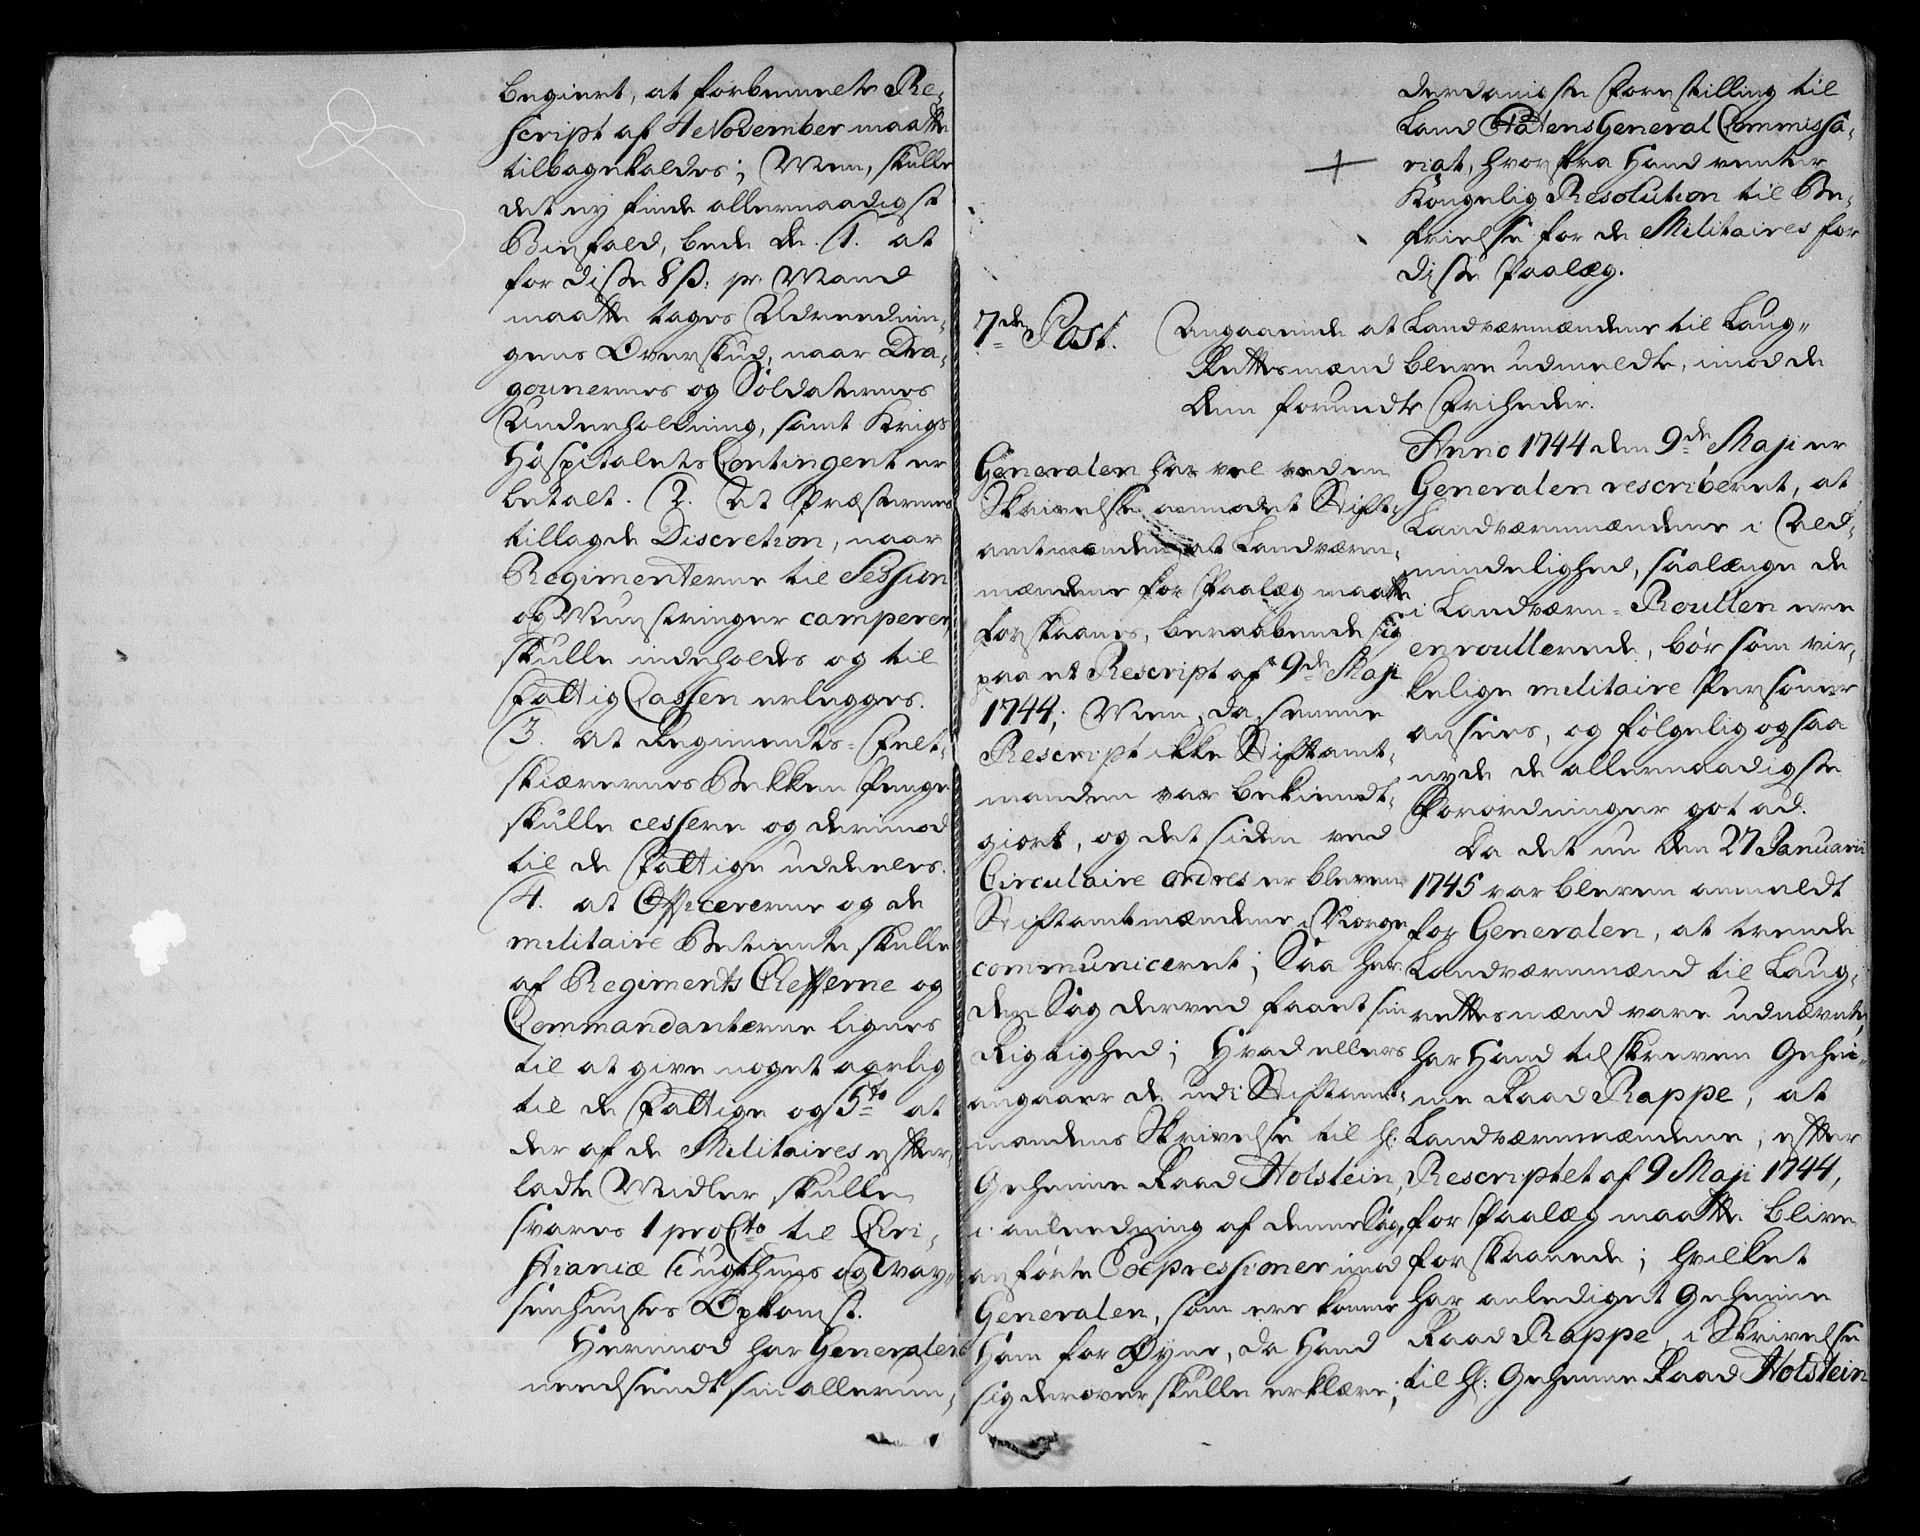 begiert, at forbemeelte Re-
script af 4 November maatte
tilbagekaldes; Men, skulle
det ey finde allernaadigst
Biefald, bede de. 1. at
for disse 8 ß: pr. Mand
maatte tages Udreednin-
gens Overskud, naar Dra-
gounernes og Soldaternes
Underholdning, samt Krigs
Hospitalets Contingent er
betalt. 2. At Præsternes
tillagde Discretion, naar
Regimenterne til Session
og Munstringer camperer,
skulle indeholdes og til
Fattig Cassen erlegges.
3. at Regiments-Felt-
skiærernes Bekken Penge
skulle cessere og derimod
til de Fattige uddeeles.
4. at Officererne og de
militaire Betiente skulle
af Regiments Chefferne og
Commandanterne lignes
til at give noget aarlig
til de Fattige og 5to at
der af de Militaires efter-
ladte Midler skulle
svares 1 pro Cto til Chri-
stianiæ Tugthuus og Way-
senhuuses Opkomst.
Herimod har Generalen
needsendt sin allerun-
derdanigste Forestilling til
Land Etatens General Commissa-
riat, hvorfra Hand venter
Kongelig Resolution til Be-
frielse for de Militaires for
disse Paalæg.
7de Post. Angaaende at Landværnmændene til Laug-
Rettesmænd bleve udmeldte, imod de
dem forundte Friheder.
Generalen har vel ved en
Skrivelse anmodet Stift-
amtmanden, at Landværn-
mændene for Paalæg maatte
forskaanes, beraabende sig
paa et Rescript af 9de Maji
1744; Men, da samme
Rescript ikke Stiftamt-
manden var bekiendt-
giort, og det siden ved
Circulaire ordres er bleven
Stiftamtmændene i Norge
communiceret; Saa har
den Sag derved faaet sin
Rigtighed; Hvad ellers
angaaer de udi Stiftamt-
mandens Skrivelse til H:
Geheime Raad Holstein,
i anleedning af denne Sag,
anførte Expressioner imod
Generalen, som ere komne
Ham for Øyne, da Hand
sig derover skulle erklære;
Anno 1744 den 9de Maji er
Generalen rescriberet, at
Landværnmændene i Ald-
mindelighed, saalænge de
i Landværn-Roullen ere
enroullerede, bør som vir-
kelige militaire Personer
ansees, og følgelig ogsaa
nyde de allernaadigste
Forordninger got ad.
Da det nu den 27 Januarii
1745 var bleven anmeldt
for Generalen, at trende
Landværnmænd til Laug-
rettesmænd vare udnævnte,
har Hand tilskreven Gehei-
me Raad Rappe, at
Landværnmændene, efter
Rescriptet af 9 Maji 1744,
for Paalæg maatte blive
forskaanede; hvilket
har anlediget Geheime
Raad Rappe, i Skrivelse
til H: Geheime Raad Holstein